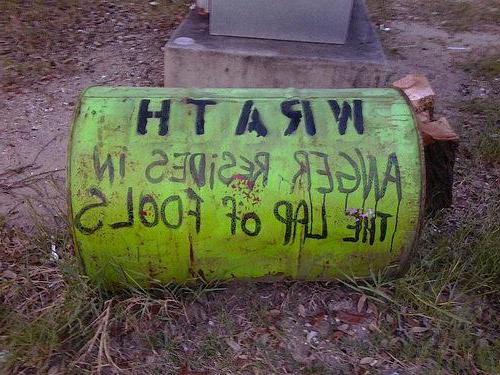 WRATH
ANGER RESIDES IN
THE LAP OF FOOLS